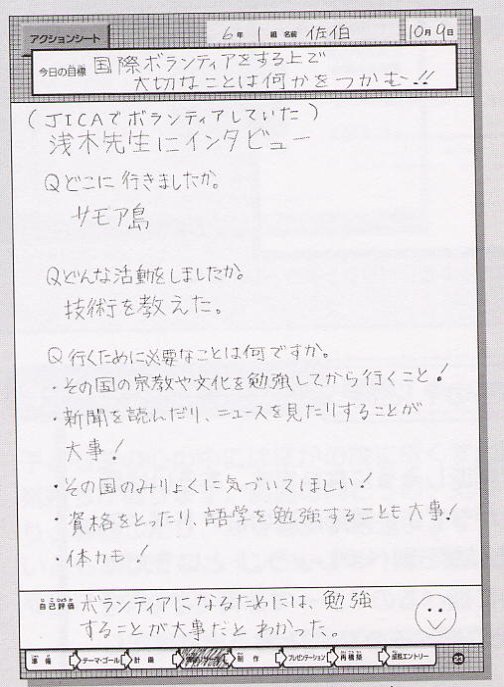 アクションシート
6年 1組 名前 佐伯 10月9日
今日の目標 国際ボランティアをする上で
大切なことは何かをつかむ!!
(JICAでボランティアしていた)
浅木先生にインタビュー
Qどこに行きましたか。
サモア島
Qどんな活動をしましたか。
技術を教えた。
Q行くために必要なことは何ですか。
・その国の宗教や文化を勉強してから行くこと!
・新聞を読んだり、ニュースを見たりすることが
大事!
・その国のみりょくに気づいてほしい!
・資格をとったり、語学を勉強することも大事!
・体力も!
自己評価 ボランティアになるためには、勉強
することが大事だとわかった。
準備 テーマ・ゴール 計画 制作 プレゼンテーション 再構築 成長エントリー 23